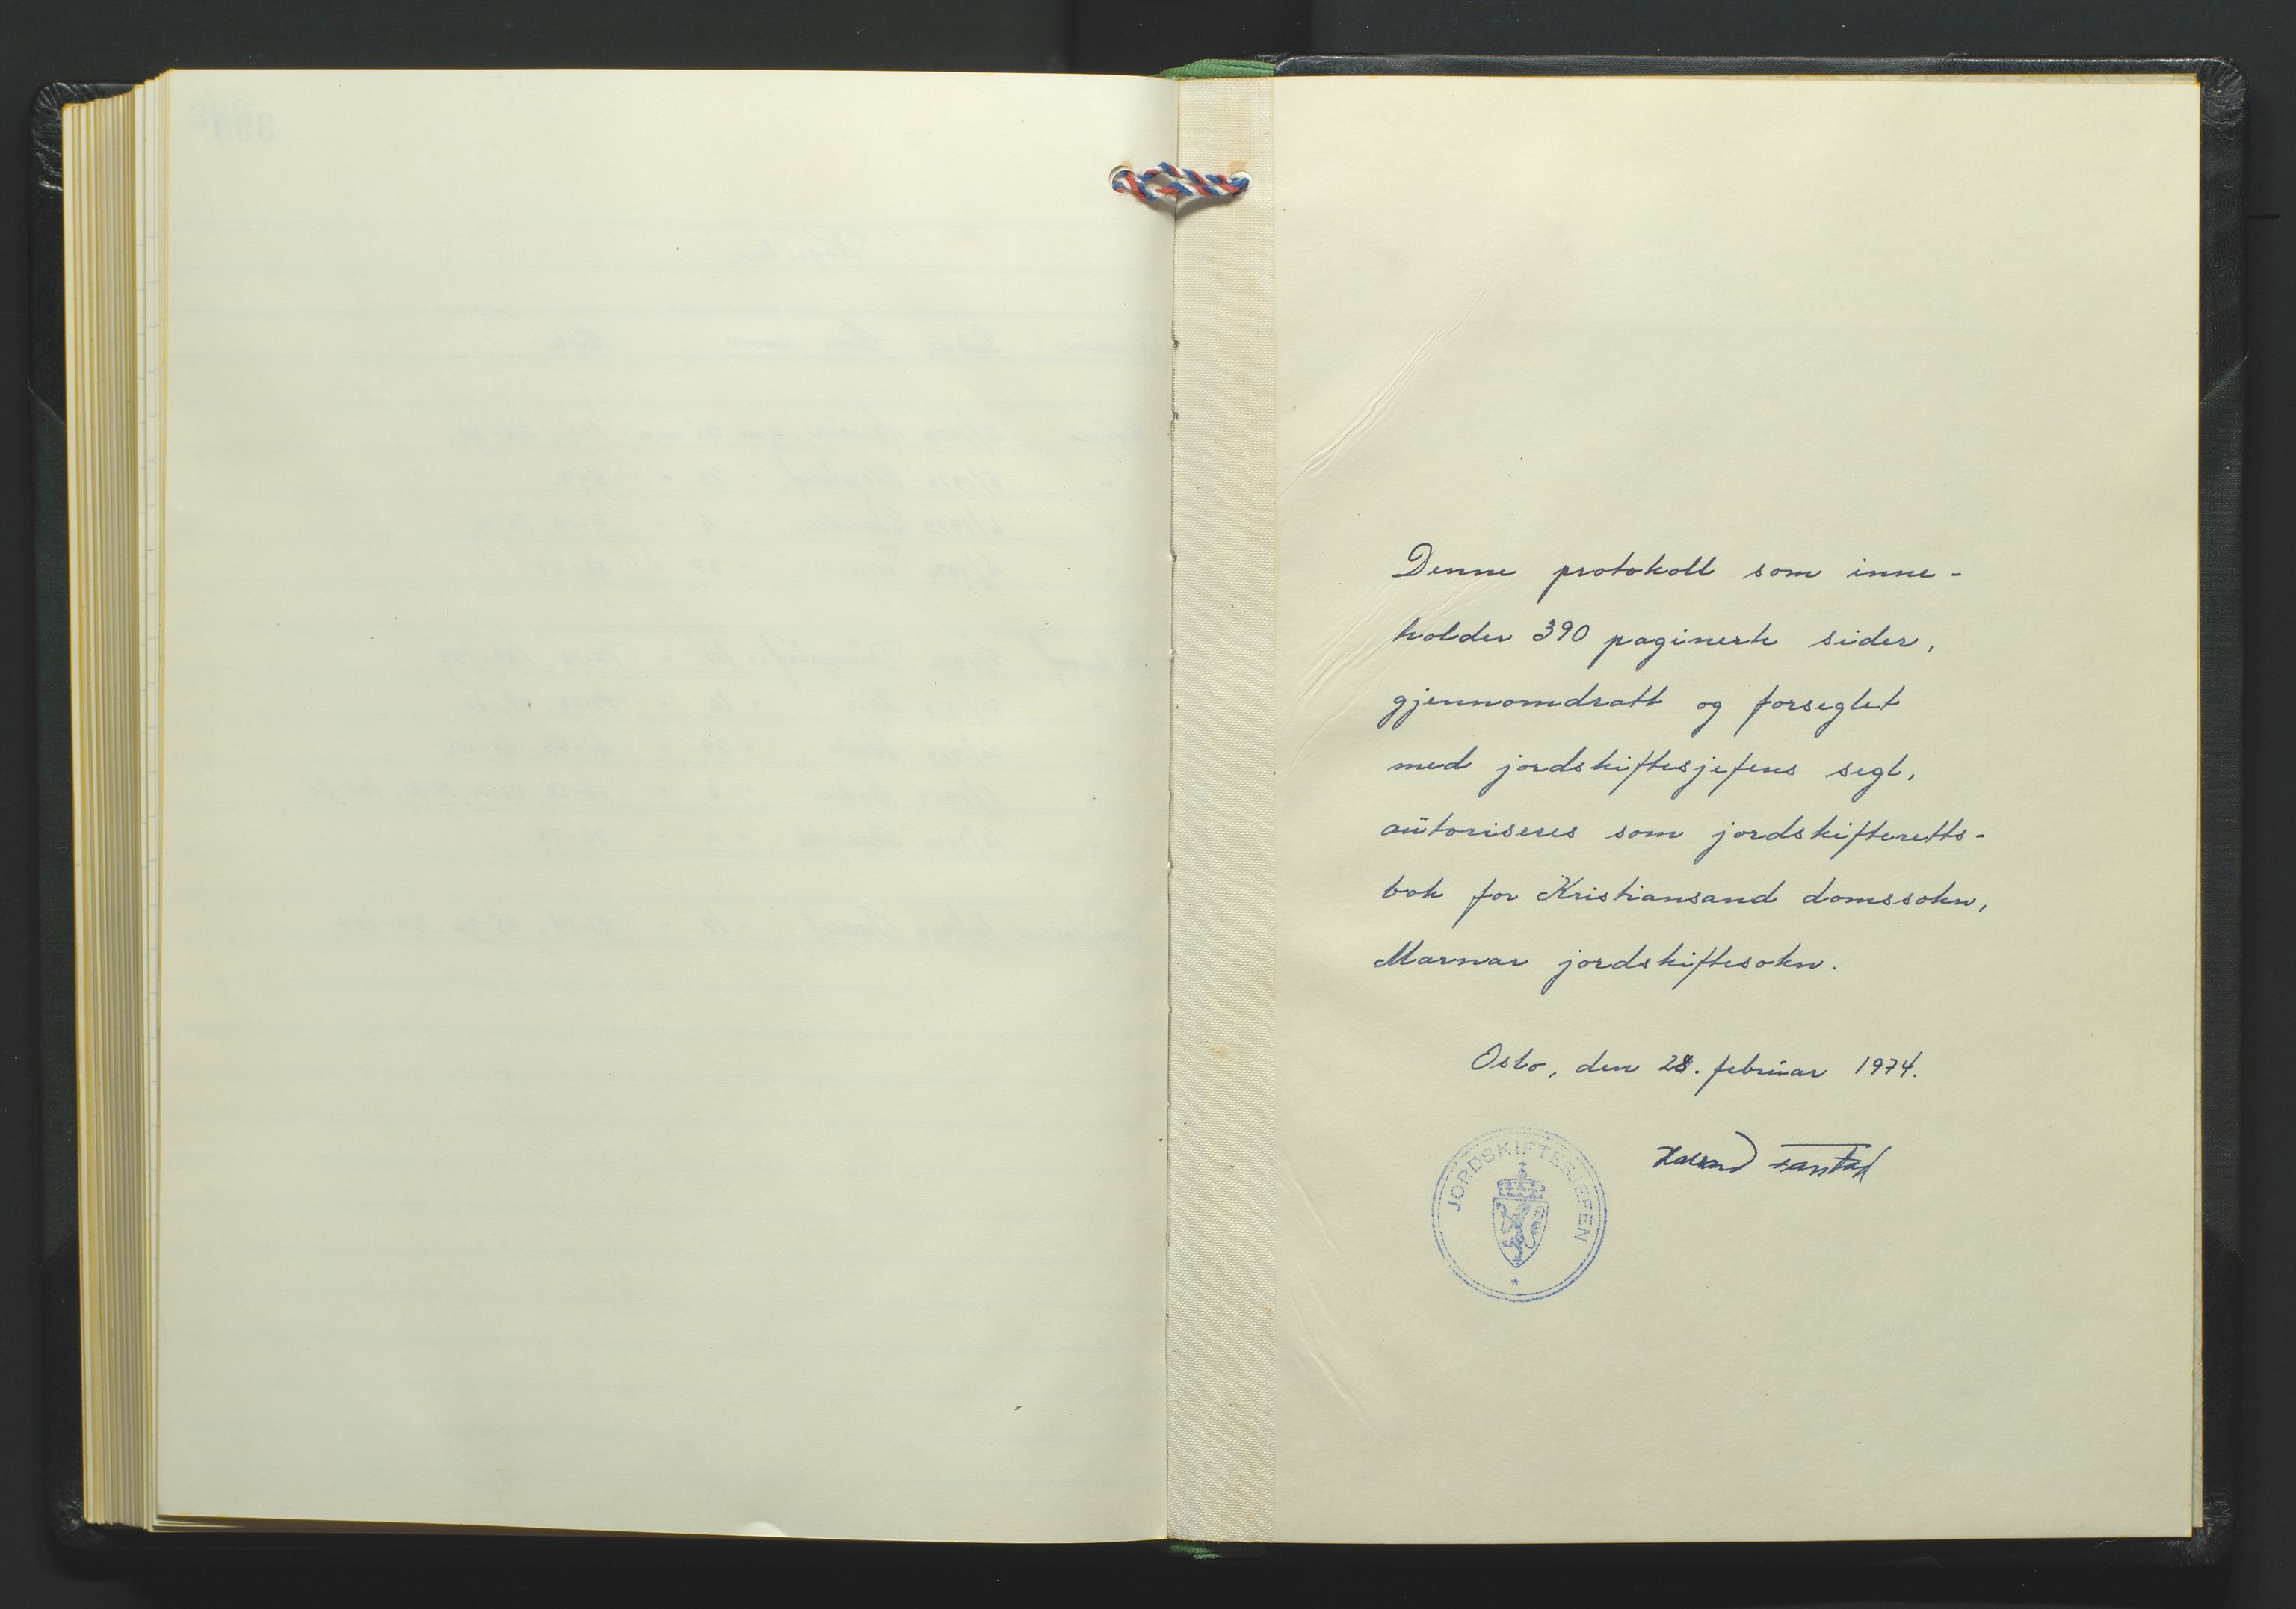 Denne protokoll som inne-
holder 390 paginerte sider,
gjennomdratt og forseglet
med jordskiftesjefens segl,
autoriseres som jordskifteretts-
bok for Kristiansand domssokn,
Marnar jordskiftesokn.
Oslo, den 28. februar 1974.
JORDSKIFTESJEFEN